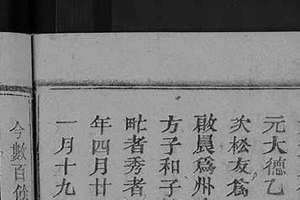 元大德乙
次松友爲
啟晨爲州
方子和子
毗者秀者
年四月廿
一月十九
今數百餘